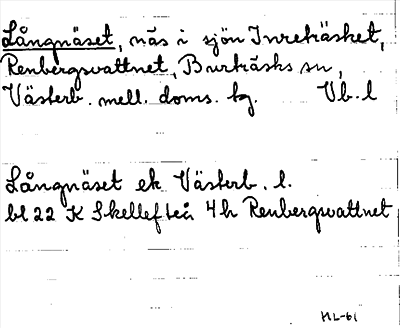 Långnäset, näs i sjön Inreträsket,
Renbergsvattnet, Burträsks sn,
Västerb. mell. doms. tg. Vb. l
Långnäset ek Västerb. l.
bl 22 K Skellefteå 4h Renbergsvattnet
HL-61